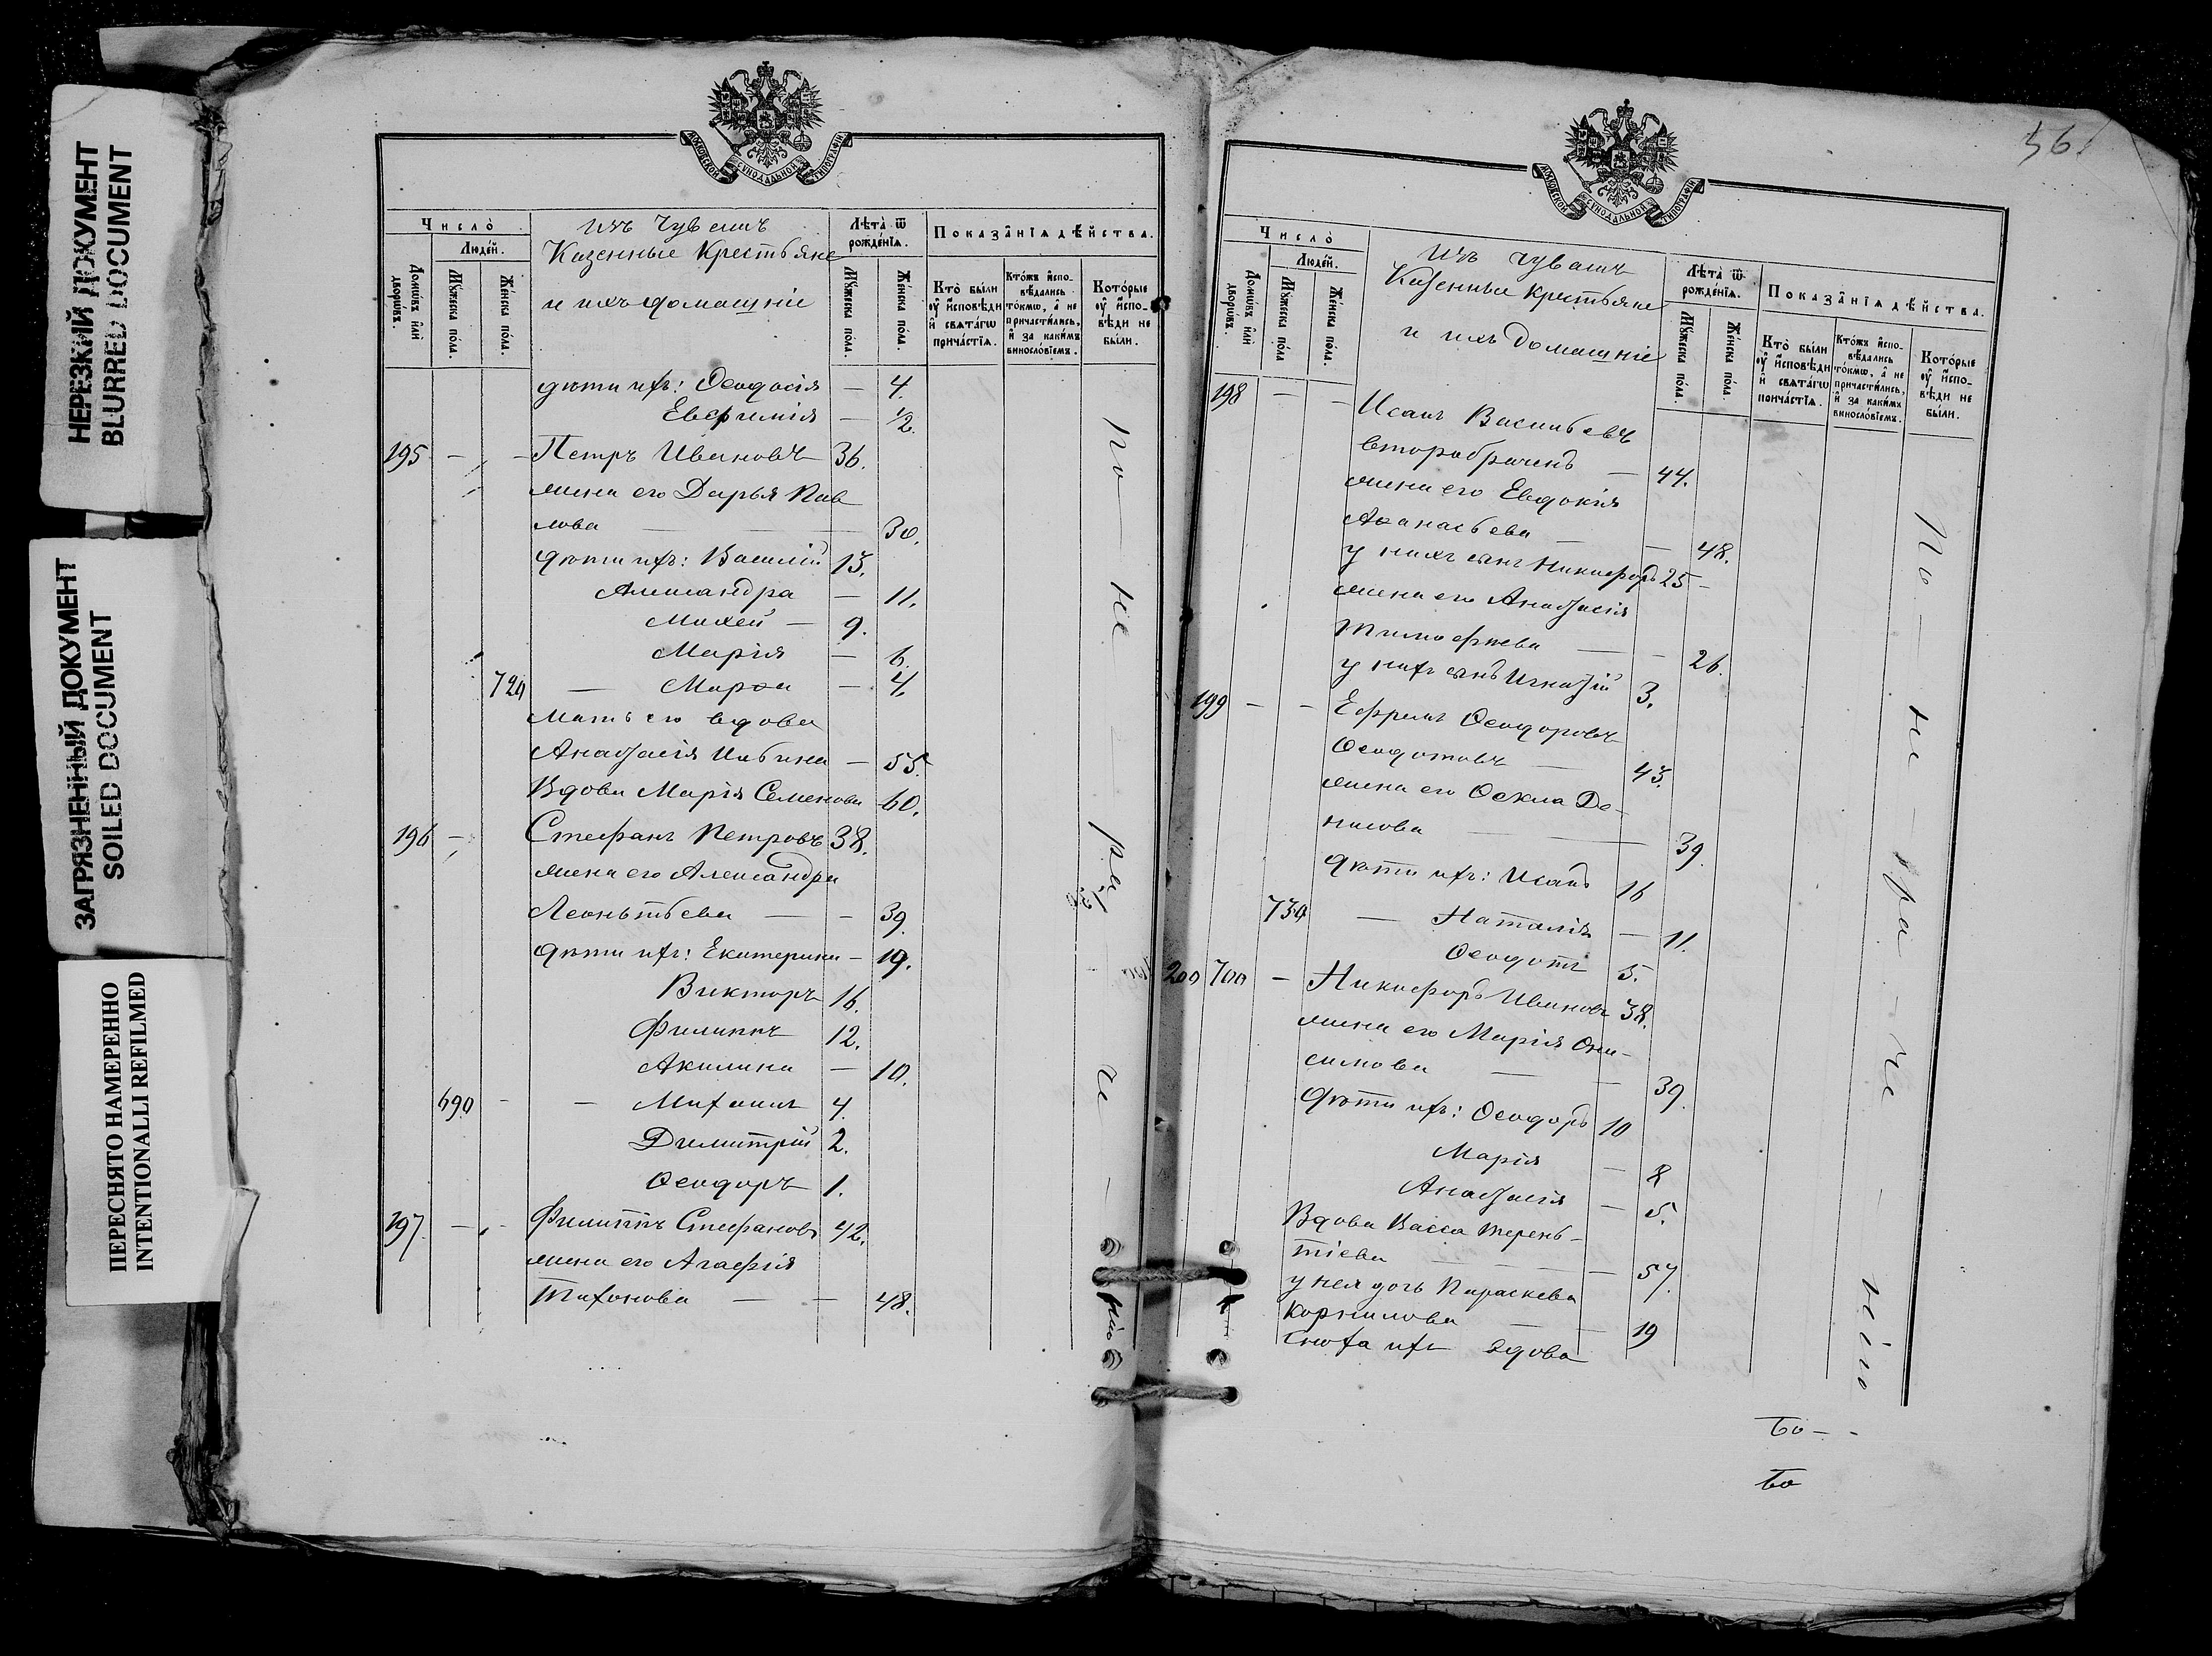 НЕРЕЗКИЙ ДОКУМЕНТ
BLURRED DOCUMENT
ЗАГРЯЗНЕННЫЙ ДОКУМЕНТ
SOILED DOCUMENT
ПЕРЕСНЯТО НАМЕРЕННО
INTENTIONALLI REFILMED
МОСКОВСКОЙ СѴНОДАЛЬНОЙ ТИПОГРАФІИ
Число̀
Людéй.
Домѡ́въ и҆лѝ дворѡ́въ.
Мꙋ́жеска по́ла.
Же́нска по́ла.
изъ Чувашъ
Казенные Крестьяне
и ихъ домашніе
Лѣ́та ѿ рожде́нїѧ.
Мꙋ́жеска по́ла.
Же́нска по́ла.
Показа̑нїѧ дѣ́йства.
Кто̀ бы́ли ᲂу҆ и҆́сповѣди и҆ свѧта́гѡ прича́стїѧ.
Кто́жъ и҆спо-
вѣ́дались
то́кмѡ, а҆ не
причасти́лись,
и҆ за каки́мъ
винослóвїемъ.
Кото́рые ᲂу҆ и҆́спо-
вѣди не
бы́ли.
дѣти ихъ: Ѳеодосія — 4.
Евфимія — 1/2
195 — — Петръ Ивановъ 36.
жена его Дарья Пав
лова — 30.
дѣти ихъ: Василій 13.
Александра — 11.
Михей — 9.
Марія — 6.
724 — Марѳа — 4.
мать его вдова
Анастасія — 55.
Вдова Марія Семенова 60.
196 — Стефанъ Петровъ 38.
жена его Александра
Леонтьева — — 39.
дѣти ихъ: Екатерина — 19.
Викторъ 16.
Филиппъ 12.
Акилина — 10.
690 — — Михаилъ 4.
Димитрій 2.
Ѳеодоръ 1.
197. — — Филиппъ Стефановъ 42.
жена его Агафія
Тихонова — — 48.
по — не — ра — че — нію
56.
МОСКОВСКОЙ СѴНОДАЛЬНОЙ ТИПОГРАФІИ
Число̀
Людéй.
Домѡ́въ и҆лѝ дворѡ́въ.
Мꙋ́жеска по́ла
Же́нска по́ла.
Изъ чувашъ
Казенные крестьяне
и ихъ домашніе
Лѣ́та ѿ рожде́нїѧ.
Мꙋ́жеска по́ла.
Же́нска по́ла.
Показа̑нїѧ дѣ́йства.
Кто̀ бы́ли ᲂу҆ и҆́сповѣди и҆ свѧта́гѡ прича́стїѧ.
Кто́жъ и҆спо-
вѣ́дались
то́кмѡ, а҆ не
причасти́лись,
и҆ за каки́мъ
винослóвїемъ.
Кото́рые ᲂу҆ и҆́спо-
вѣди не
бы́ли.
198 — — Исаакъ Васильевъ
второбраченъ — 44.
жена его Евдокія
Аѳанасьева — — 48.
у нихъ сынъ Никифоръ 25 —
жена его Анастасія
Тимофеева — — 26.
у нихъ сынъ Игнатій 3.
199 — — Ефремъ Ѳеодоровъ
Ѳеодотовъ — 43.
жена его Ѳекла Де-
нисова — 39.
дѣти ихъ: Исаакъ 16
730 — Наталія — 11.
Ѳеодотъ 5.
200 700 — Никифоръ Ивановъ 38.
жена его Марія Они-
симова — — 39.
дѣти ихъ: Ѳеодоръ 10
Марія — 8
Анастасія — 5.
Вдова Васса Терень-
тіева — — 57.
у нея дочь Параскева
Корнилова — — 19
сноха ихъ вдова
По — не — ра — че — нію